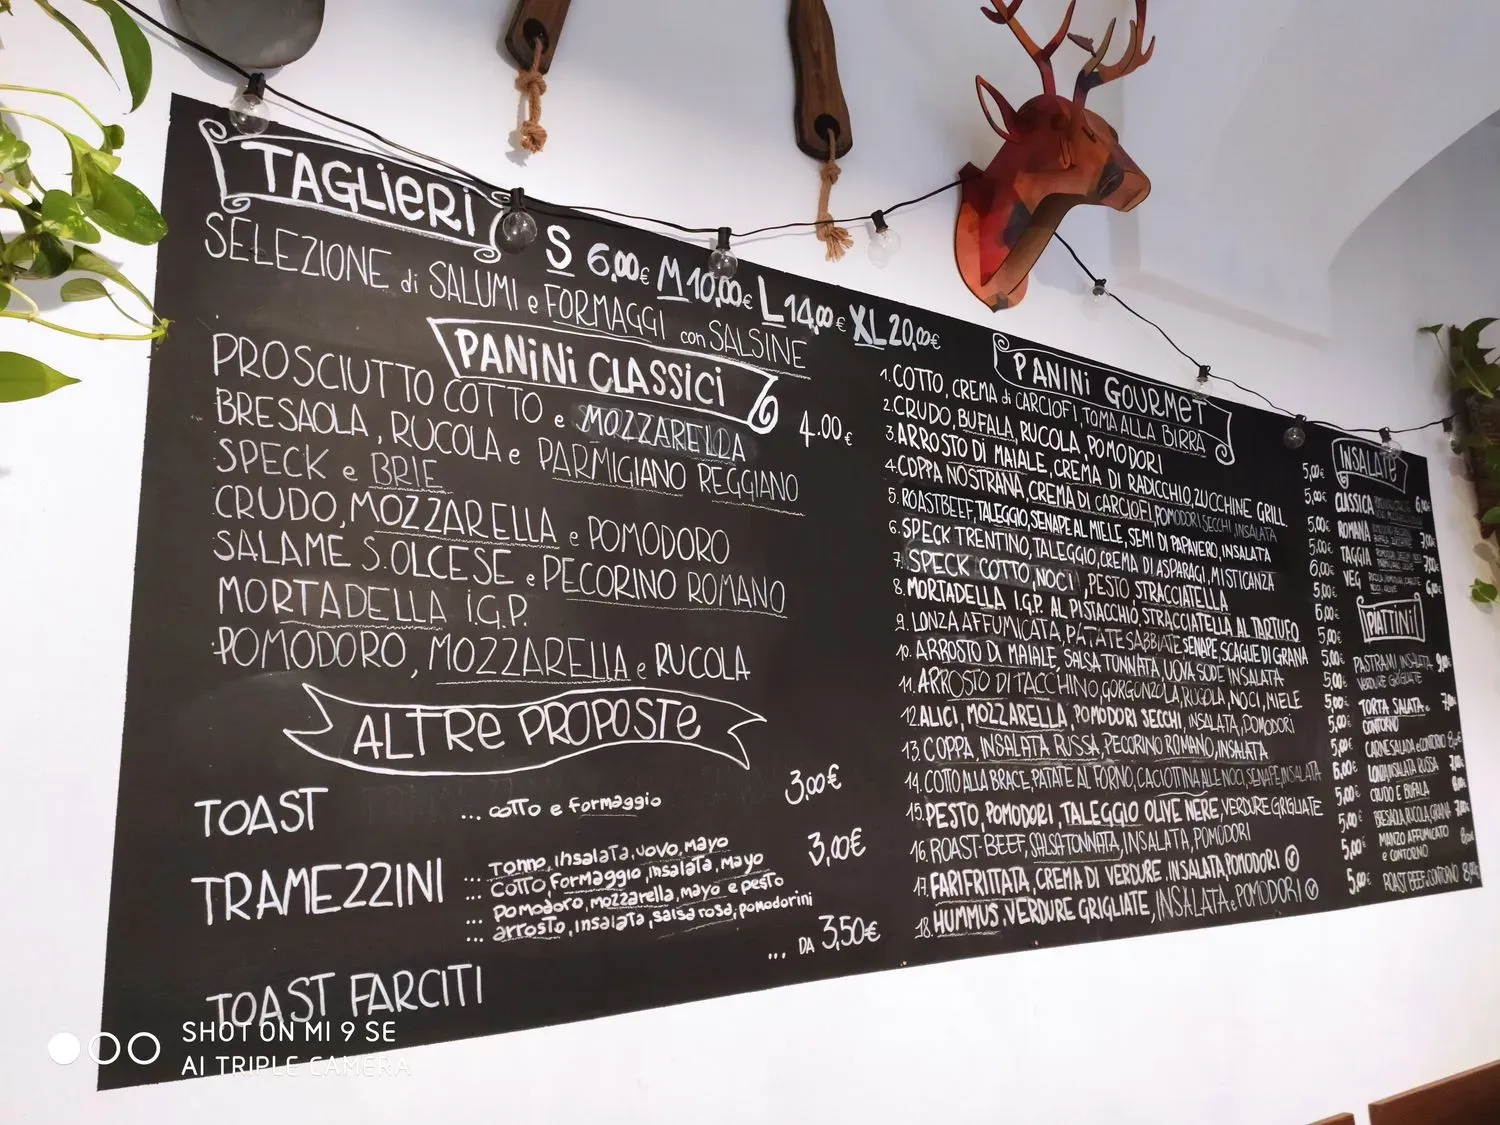 TAGLIERI
S 6,00€ M 10,00€ L 14,00€ XL 20,00€
SELEZIONE di SALUMI e FORMAGGI con SALSINE
PANINI CLASSICI
4.00€
PROSCIUTTO COTTO e MOZZARELLA
BRESAOLA, RUCOLA e PARMIGIANO REGGIANO
SPECK e BRIE
CRUDO, MOZZARELLA e POMODORO
SALAME S.OLCESE e PECORINO ROMANO
MORTADELLA I.G.P.
POMODORO, MOZZARELLA e RUCOLA
ALTRE PROPOSTE
TOAST ... cotto e formaggio 3,00€
TRAMEZZINI ... Tonno, insalata, uovo, mayo 3,00€
... cotto, formaggio, insalata, mayo
... pomodoro, mozzarella, mayo e pesto
... arrosto, insalata, salsa rosa, pomodorini
TOAST FARCITI ... DA 3,50€
PANINI GOURMET
1. COTTO, CREMA di CARCIOFI, TOMA ALLA BIRRA 5,00€
2. CRUDO, BUFALA, RUCOLA, POMODORI 5,00€
3. ARROSTO DI MAIALE, CREMA DI RADICCHIO, ZUCCHINE GRILL 5,00€
4. COPPA NOSTRANA, CREMA DI CARCIOFI, POMODORI SECCHI INSALATA 5,00€
5. ROASTBEEF, TALEGGIO, SENAPE AL MIELE, SEMI DI PAPAVERO, INSALATA 6,00€
6. SPECK TRENTINO, TALEGGIO, CREMA DI ASPARAGI, MISTICANZA
7. SPECK COTTO, NOCI, PESTO STRACCIATELLA
8. MORTADELLA I.G.P. AL PISTACCHIO STRACCIATELLA AL TARTUFO
9. LONZA AFFUMICATA, PATATE SABBIATE SENAPE, SCAGLIE DI GRANA
10. ARROSTO DI MAIALE, SALSA TONNATA, UOVA SODE INSALATA
11. ARROSTO DI TACCHINO, GORGONZOLA, RUCOLA, NOCI, MIELE
12. ALICI, MOZZARELLA, POMODORI SECCHI, INSALATA, POMODORI
13. COPPA, INSALATA RUSSA, PECORINO ROMANO, INSALATA
14. COTTO ALLA BRACE, PATATE AL FORNO, CACIOTTINA ALLE NOCI, SENAPE, INSALATA
15. PESTO, POMODORI, TALEGGIO OLIVE NERE, VERDURE GRIGLIATE
16. ROAST-BEEF, SALSA TONNATA, INSALATA, POMODORI
17. FARIFRITTATA, CREMA DI VERDURE, INSALATA, POMODORI
18. HUMMUS, VERDURE GRIGLIATE, INSALATA e POMODORI 5,00€
INSALATE
CLASSICA 6,00€
ROMANA 7,00€
TAGGIA 7,00€
VEG 6,00€
PIATTINI
PASTRAMI INSALATA 9,00€
VERDURE GRIGLIATE
TORTA SALATA e 7,00€
CONTORNO
CARNE SALADA e CONTORNO
LONZA INSALATA RUSSA
CRUDO E BUFALA
BRESAOLA, RUCOLA, GRANA
MANZO AFFUMICATO
e CONTORNO
ROAST BEEF e CONTORNO 8,00€
SHOT ON MI 9 SE
AI TRIPLE CAMERA